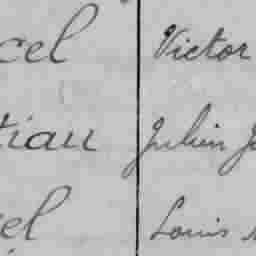 cel Victor
tian Julien Jo
el Louis